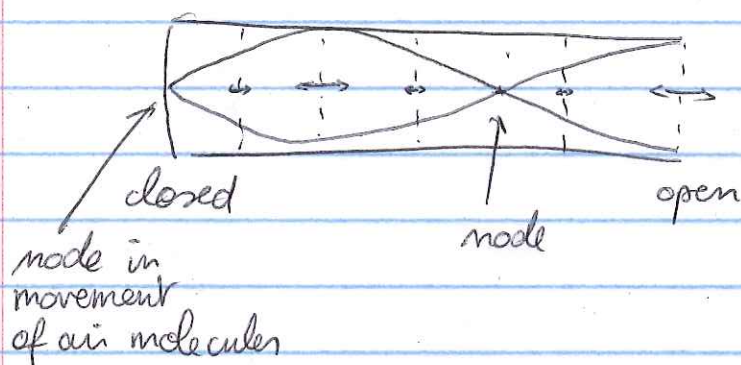 closed
open
node
node in
movement
of air molecules